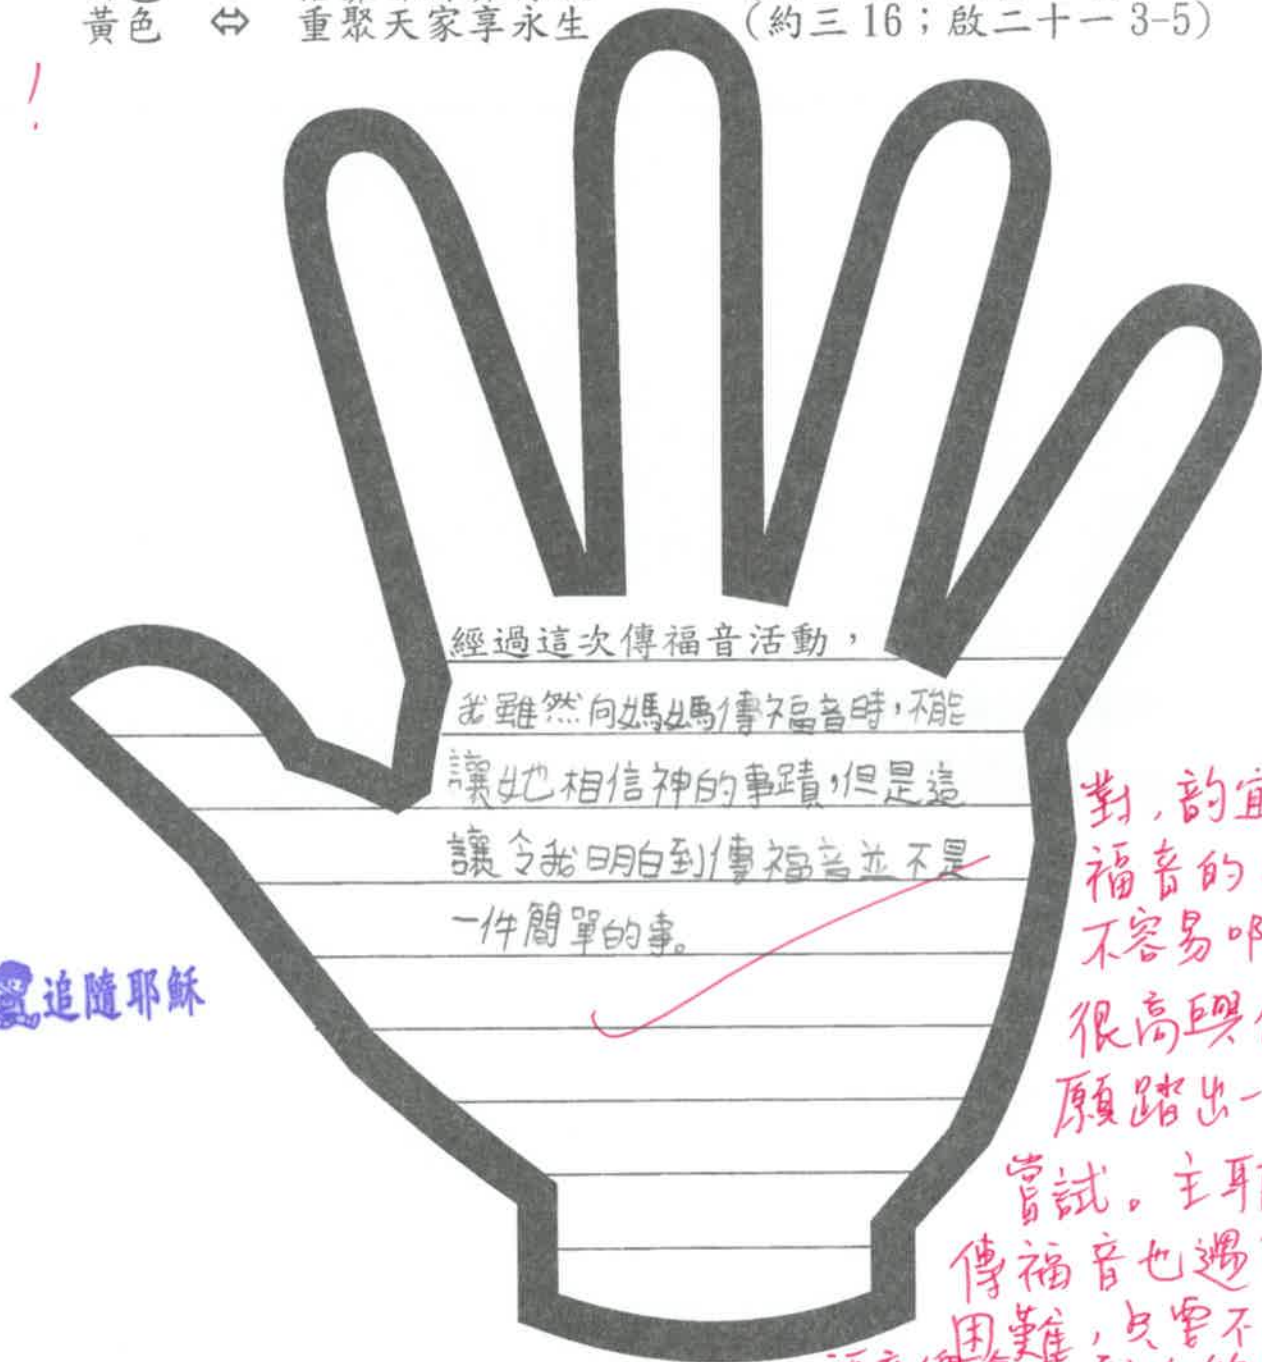 黃色 ⇔ 重聚天家享永生 (約三 16；啟二十一 3-5)
!
經過這次傳福音活動，
我雖然向媽媽傳福音時，不能
讓她相信神的事蹟，但是這
讓令我明白到傳福音並不是
一件簡單的事。
追隨耶穌
對，韵宜
福音的
不容易
很高興
願踏出一
嘗試。主耶
傳福音也遇
困難，只要不